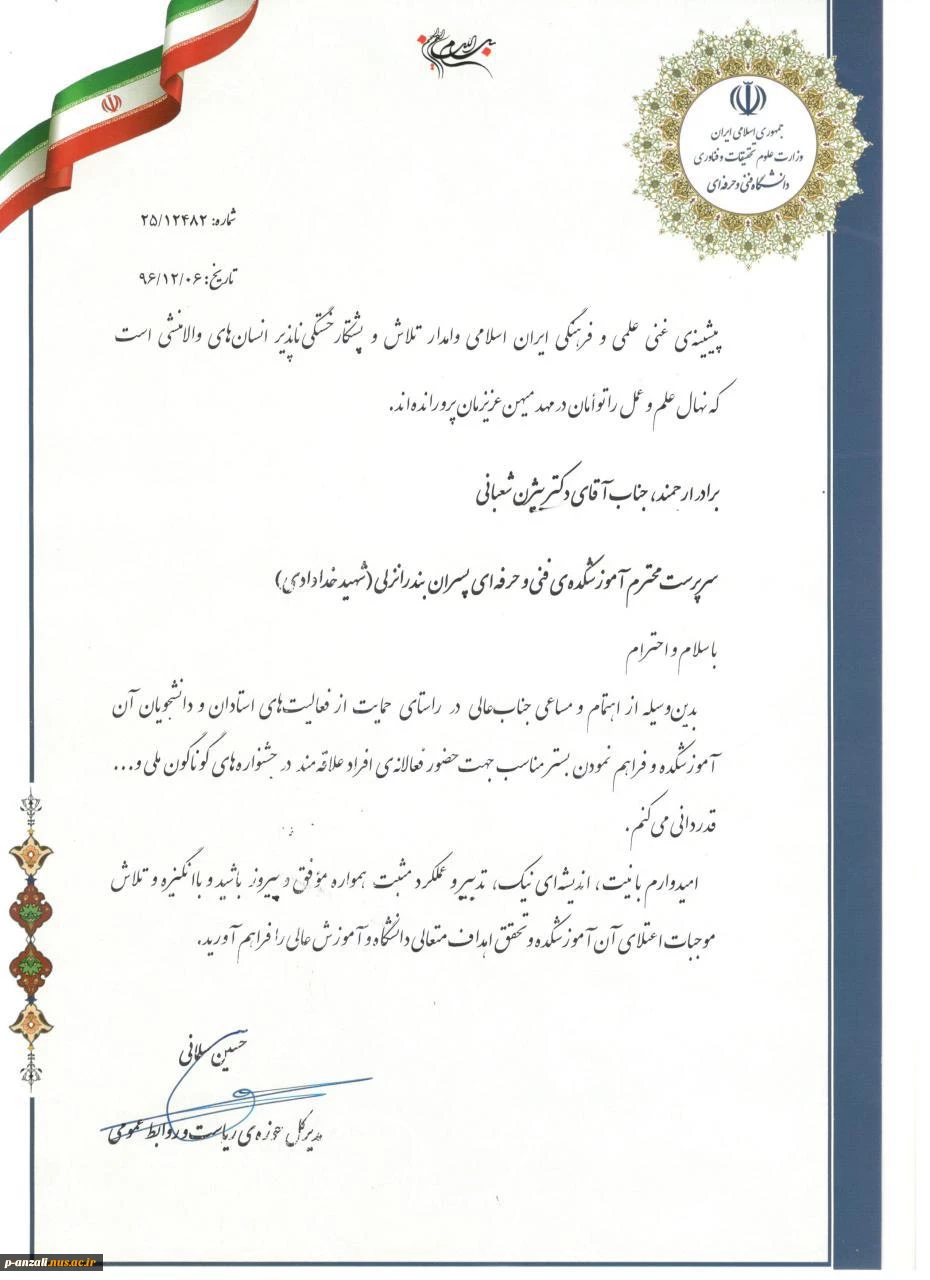 جمهوری اسلامی ایران
وزارت علوم تحقیقات و فناوری
دانشگاه فنی و حرفه‌ای
شماره: ۲۵/۱۲۴۸۲
تاریخ: ۹۶/۱۲/۰۶
پیشینه‌ی غنی علمی و فرهنگی ایران اسلامی وامدار تلاش و پشتکار خستگی‌ناپذیر انسان‌های والامنشی است
که نهال علم و عمل را توأمان در مهد میهن عزیزمان پرورانده‌اند.
برادر ارجمند، جناب آقای دکتر بیژن شعبانی
سرپرست محترم آموزشکده‌ی فنی و حرفه‌ای پسران بندرانزلی (شهید خدادادی)
با سلام و احترام
بدین‌وسیله از اهتمام و مساعی جناب‌عالی در راستای حمایت از فعالیت‌های استادان و دانشجویان آن
آموزشکده و فراهم نمودن بستر مناسب جهت حضور فعالانه‌ی افراد علاقه‌مند در جشنواره‌های گوناگون ملی و...
قدردانی می‌کنم.
امیدوارم با نیت، اندیشه‌ای نیک، تدبیر و عملکرد مثبت همواره مؤفق و پیروز باشید و با انگیزه و تلاش
موجبات اعتلای آن آموزشکده و تحقق اهداف متعالی دانشگاه و آموزش عالی را فراهم آورید.
حسین
مدیرکل حوزه‌ی ریاست و روابط عمومی
p-anzali.nus.ac.ir